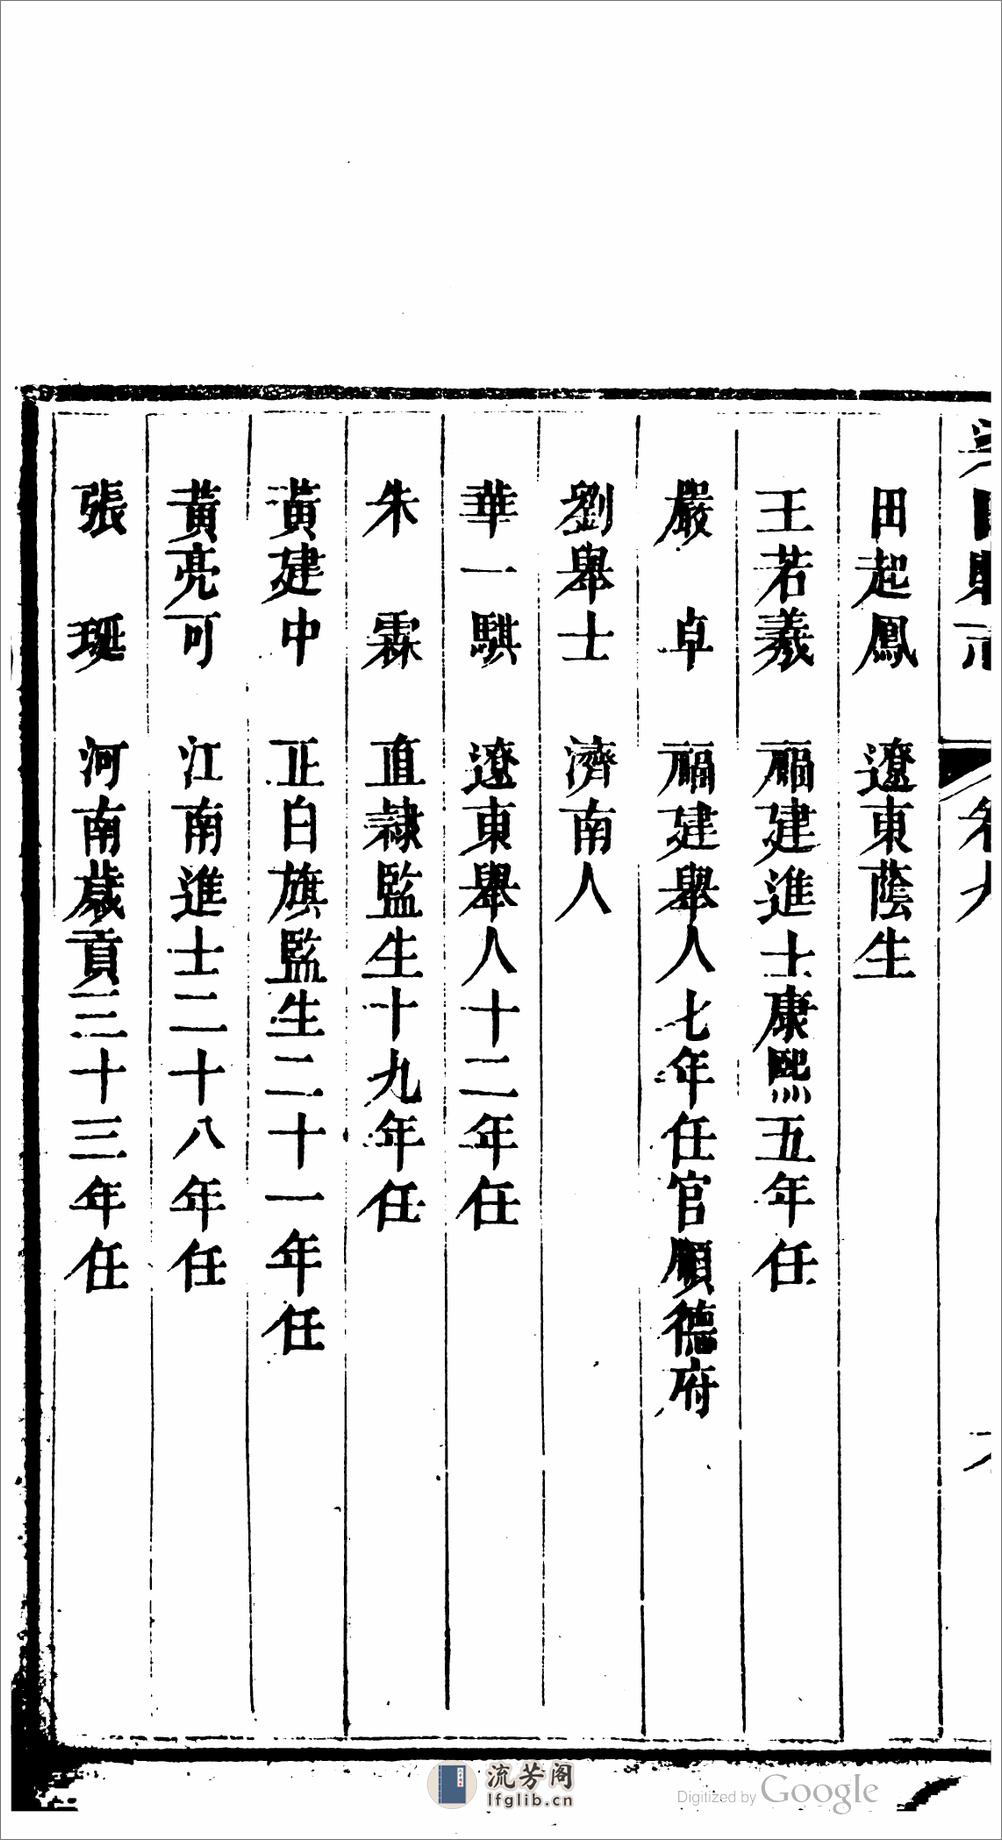 田起鳳　遼東蔭生
王若羲　福建進士康熙五年任
嚴　卓　福建舉人七年任官順德府
劉舉士　濟南人
華一騏　遼東舉人十二年任
朱　霖　直隸監生十九年任
黃建中　正白旗監生二十一年任
黃亮可　江南進士二十八年任
張　珽　河南歲貢三十三年任
流芳阁
lfglib.cn
Digitized by Google